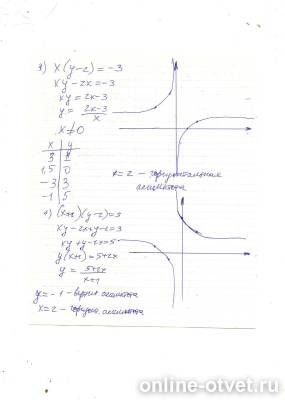 3) x(y-2)=-3
xy-2x=-3
xy=2x-3
y= (2x-3)/x
x≠0
x | y
3 | 1
1,5 | 0
-3 | 3
-1 | 5
x=2 - горизонтальная
асимптота
4) (x+1)(y-2)=3
xy-2x+y-2=3
xy+y-2x=5
y(x+1)=5+2x
y= (5+2x)/(x+1)
y=-1 - асимптота
x=2 - асимптота
online-otvet.ru